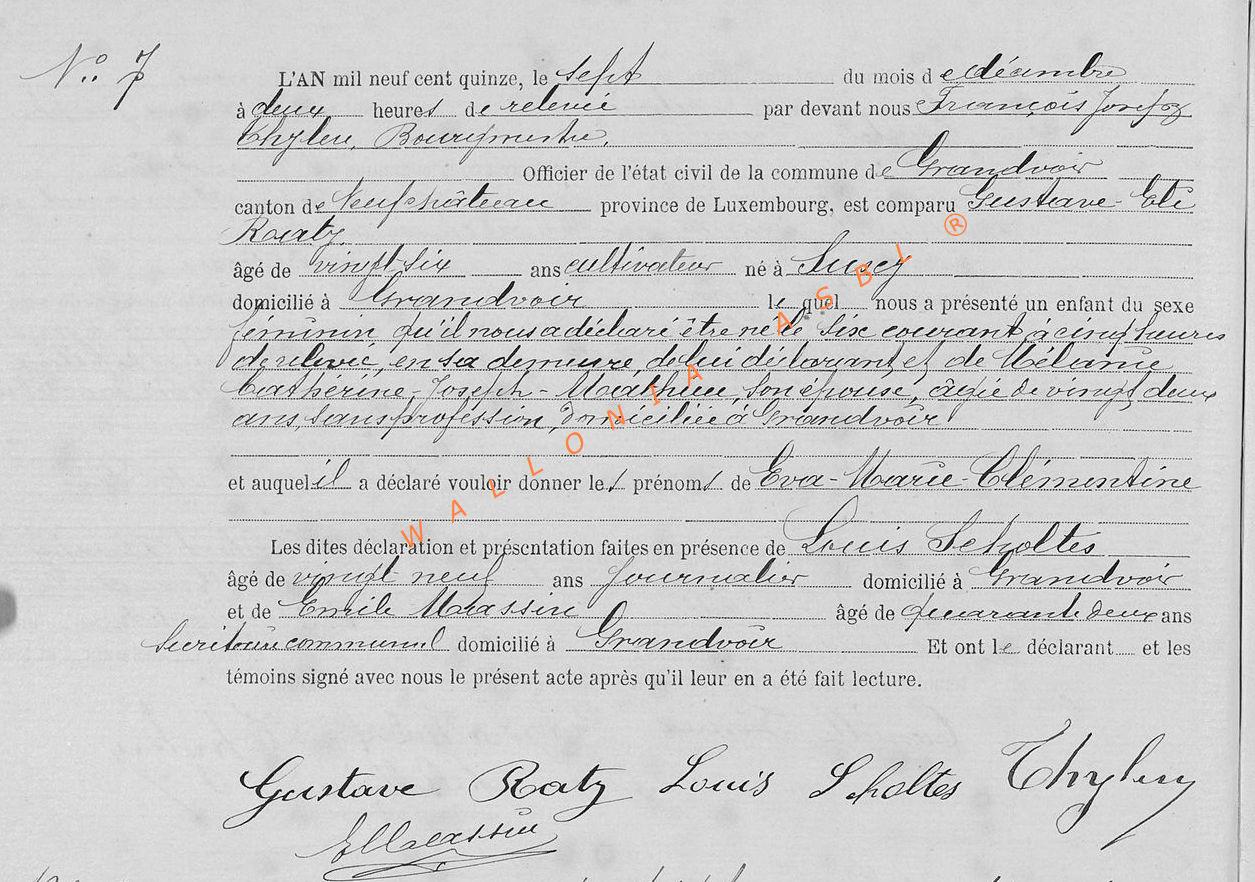 N° 7
L'AN mil neuf cent quinze, le sept du mois de décembre
à deux heures de relevée par devant nous François Joseph
Thylen, Bourgmestre,
Officier de l'état civil de la commune de Grandvoir
canton de Neufchâteau province de Luxembourg, est comparu Gustave Eli
Raty,
âgé de vingt six ans cultivateur né à Suxy
domicilié à Grandvoir lequel nous a présenté un enfant du sexe
féminin qu'il nous a déclaré être né le six courant à cinq heures
de relevée, en sa demeure, de lui déclarant et de Mélanie
Cathérine, Joseph - Mathieu, son épouse, âgée de vingt deux
ans, sans profession, domiciliée à Grandvoir
et auquel il a déclaré vouloir donner les prénoms de Eva-Marie-Clémentine
Les dites déclaration et présentation faites en présence de Louis Scholtes
âgé de vingt neuf ans journalier domicilié à Grandvoir
et de Emile Massin âgé de quarante deux ans
Secrétaire communal domicilié à Grandvoir Et ont le déclarant et les
témoins signé avec nous le présent acte après qu'il leur en a été fait lecture.
Gustave Raty Louis Scholtes Thylen
E Massin
WALLONIA ASBL ®